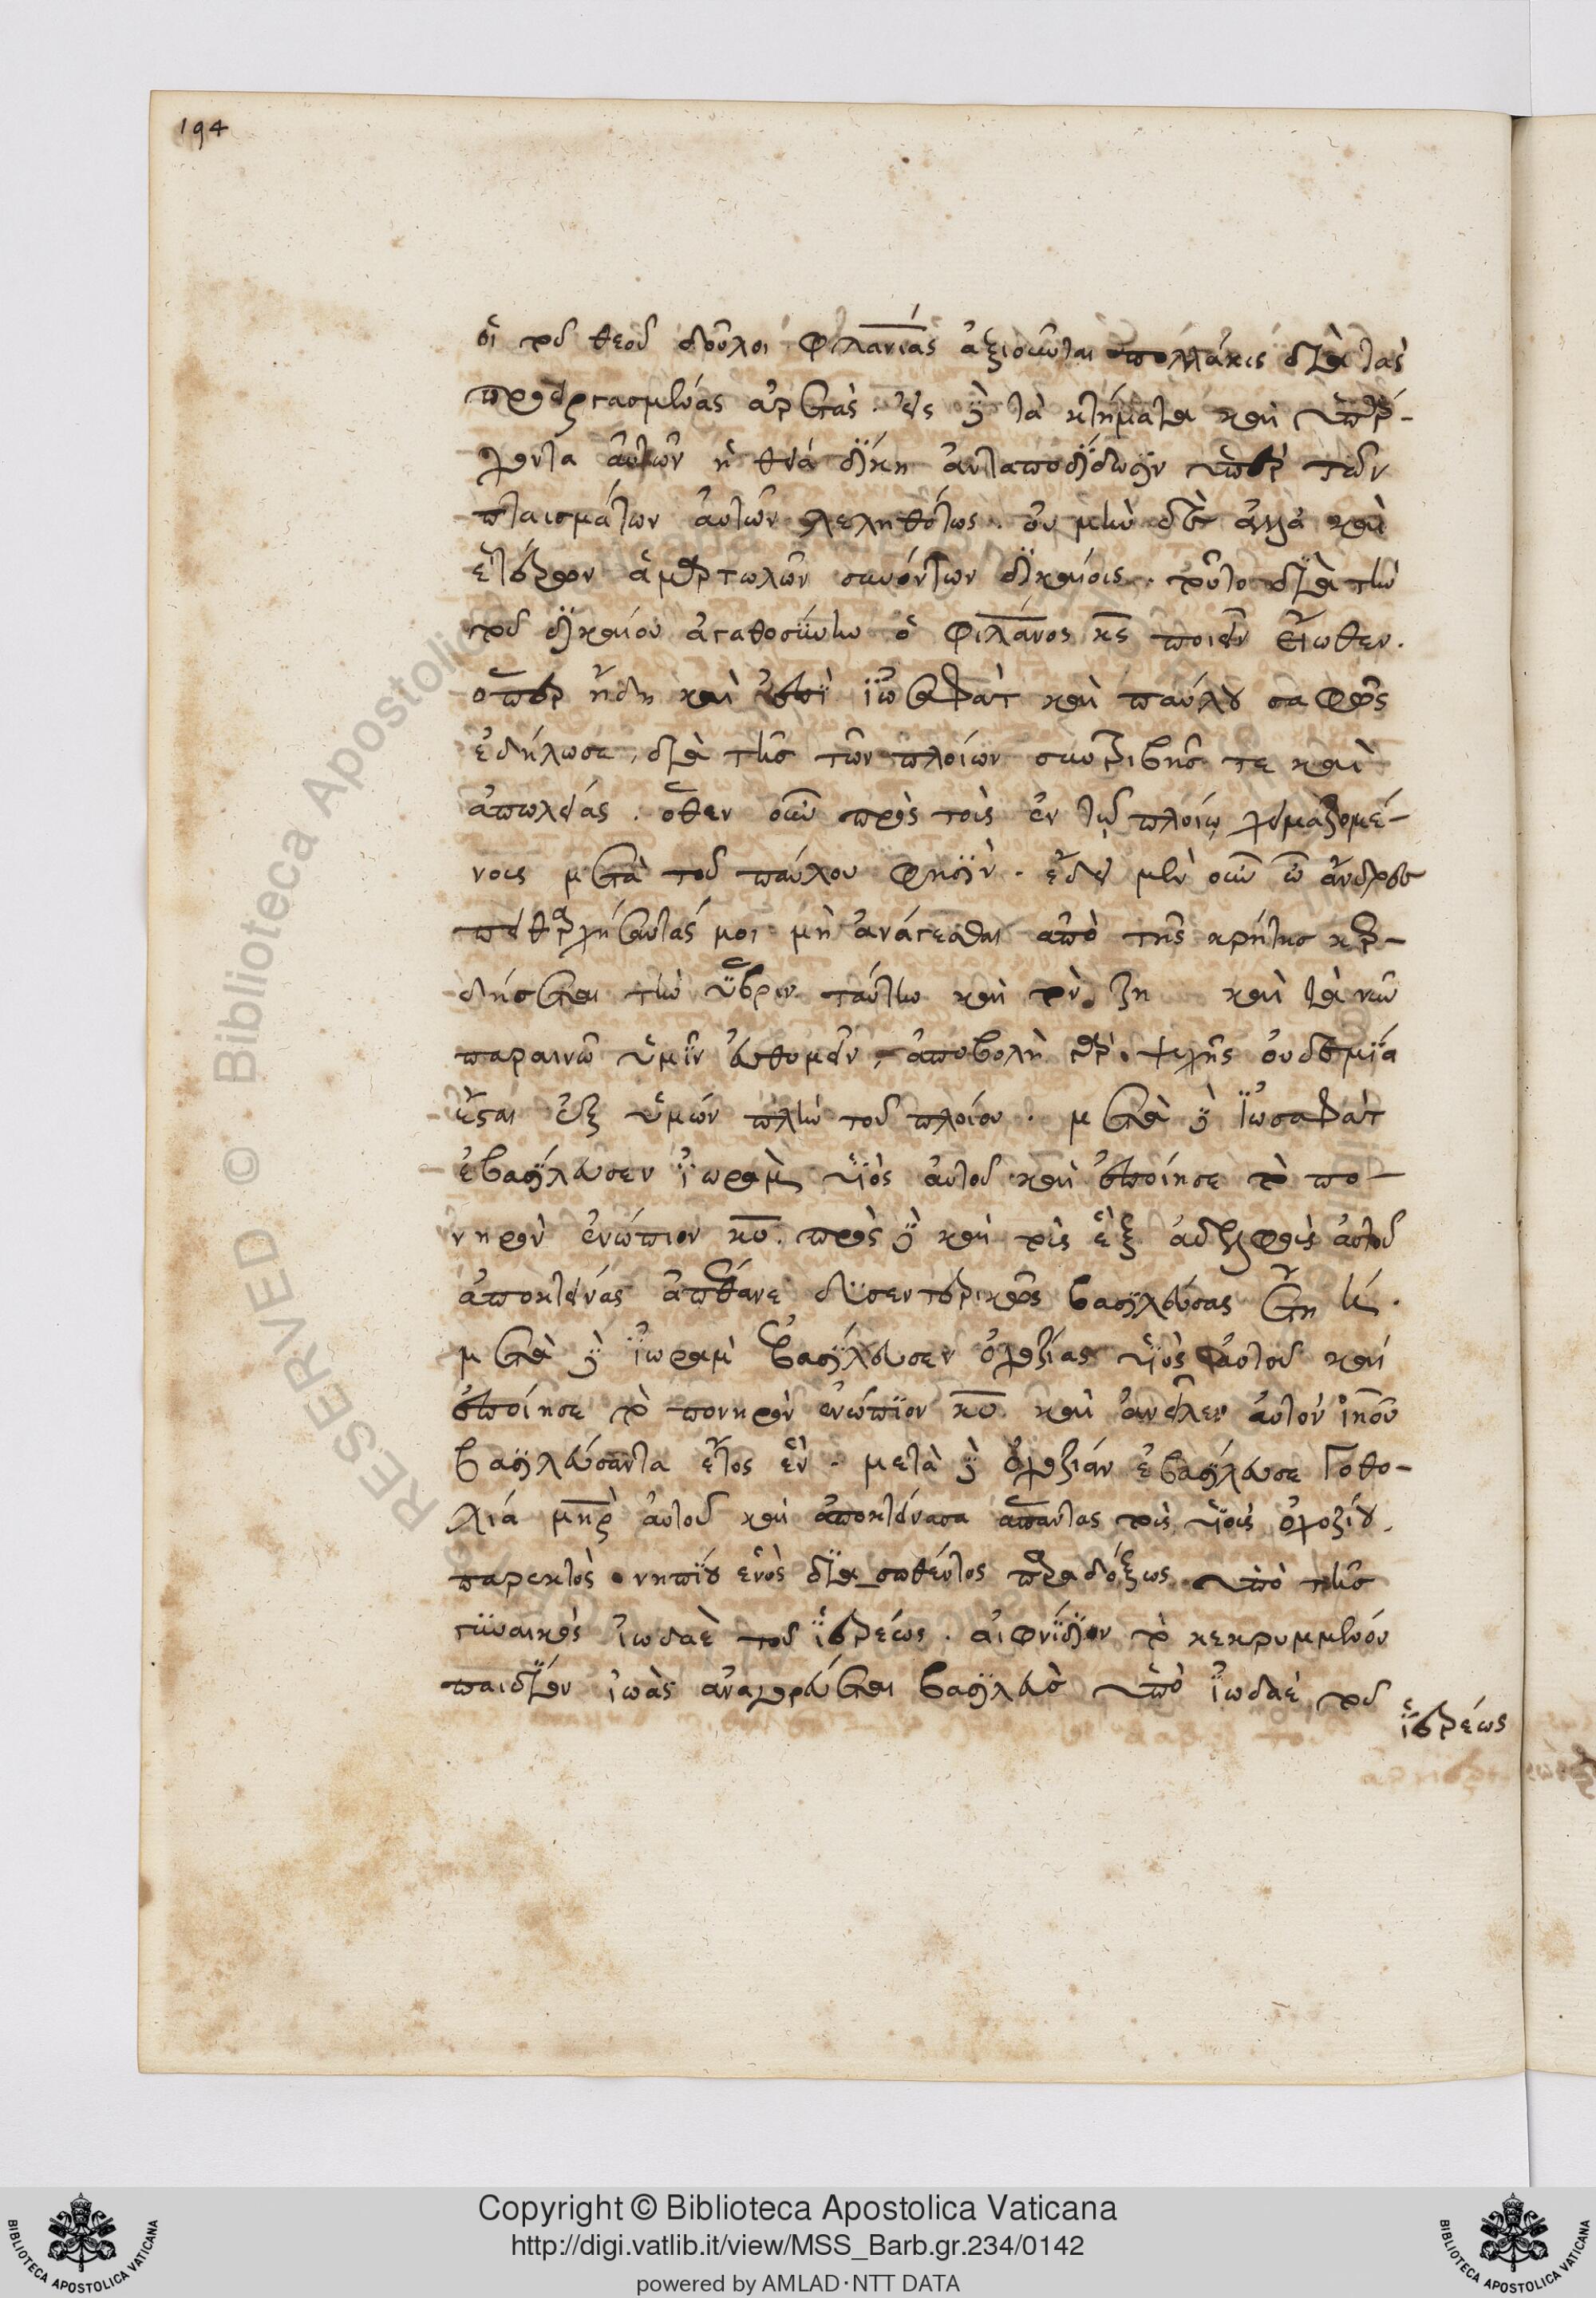 194
οἱ τοῦ θεοῦ δοῦλοι φιλανίας ἀξιοῦνται πολλάκις διὰ τὰς
προεργασμένας ἀρετάς· εἰς δὲ τὰ κτήματα καὶ ὑπάρ-
χοντα αὐτῶν ἡ θεία δίκη ἀνταποδίδωσιν ὑπὲρ τῶν
πταισμάτων αὐτῶν λεληθότως. οὐ μὴν δὲ ἀλλὰ καὶ
ἑτέρων ἁμαρτωλῶν συνόντων δικαίοις. τοῦτο διὰ τὴν
τοῦ δικαίου ἀγαθοσύνην ὁ φιλάνος κς ποιεῖν εἴωθεν.
ὅπερ ἤδη καὶ ἐπὶ ἰωσαφὰτ καὶ παύλου σαφῶς
ἐδήλωσε, διὰ τῆς τῶν πλοίων συντριβῆς τε καὶ
ἀπωλείας. ὅθεν οὖν πρὸς τοῖς ἐν τῷ πλοίῳ χειμαζομέ-
νοις μετὰ τοῦ παύλου φησίν. ἔδει μὲν οὖν ὦ ἄνδρες
πειθαρχήσαντάς μοι μὴ ἀνάγεσθαι ἀπὸ τῆς κρήτης κερ-
δήσεται τὴν ὕβριν ταύτην καὶ τὴν ζη καὶ τὰ νῦν
παραινῶ ὑμῖν εὐθυμεῖν, ἀποβολὴ γὰρ ψυχῆς οὐδεμία
ἔσται ἐξ ὑμῶν πλὴν τοῦ πλοίου. μετὰ δὲ ἰωσαφὰτ
ἐβασίλευσεν ἰωρὰμ υἱὸς αὐτοῦ καὶ ἐποίησε τὸ πο-
νηρὸν ἐνώπιον κυ. πρὸς δὲ καὶ τοὺς ἓξ ἀδελφοὺς αὐτοῦ
ἀποκτείνας ἀπέθανε δυσεντερικῶς βασιλεύσας ἔτη η.
μετὰ δὲ ἰωρὰμ ἐβασίλευσεν ὀχοζίας υἱὸς αὐτοῦ καὶ
ἐποίησε τὸ πονηρὸν ἐνώπιον κυ καὶ ἀνεῖλεν αὐτὸν ἰηοῦ
βασιλεύσαντα ἔτος ἕν. μετὰ δὲ ὀχοζίαν ἐβασίλευσε Γοθο-
λία μηρ αὐτοῦ καὶ ἀποκτείνασα ἅπαντας τοὺς υἱοὺς ὀχοζίου,
παρεκτὸς νηπίου ἑνὸς διασωθέντος παραδόξως ὑπὸ τῆς
γυναικὸς ἰωδαὲ τοῦ ἱερέως. αἰφνίδιον τὸ κεκρυμμένον
παιδίον ἰωὰς ἀναγορεύεται βασιλεὺς ὑπὸ ἰωδαὲ τοῦ
ἱερέως
RESERVED © Biblioteca Apostolic
Copyright © Biblioteca Apostolica Vaticana
http://digi.vatlib.it/view/MSS_Barb.gr.234/0142
powered by AMLAD·NTT DATA
BIBLIOTECA APOSTOLICA VATICANA
BIBLIOTECA APOSTOLICA VATICANA